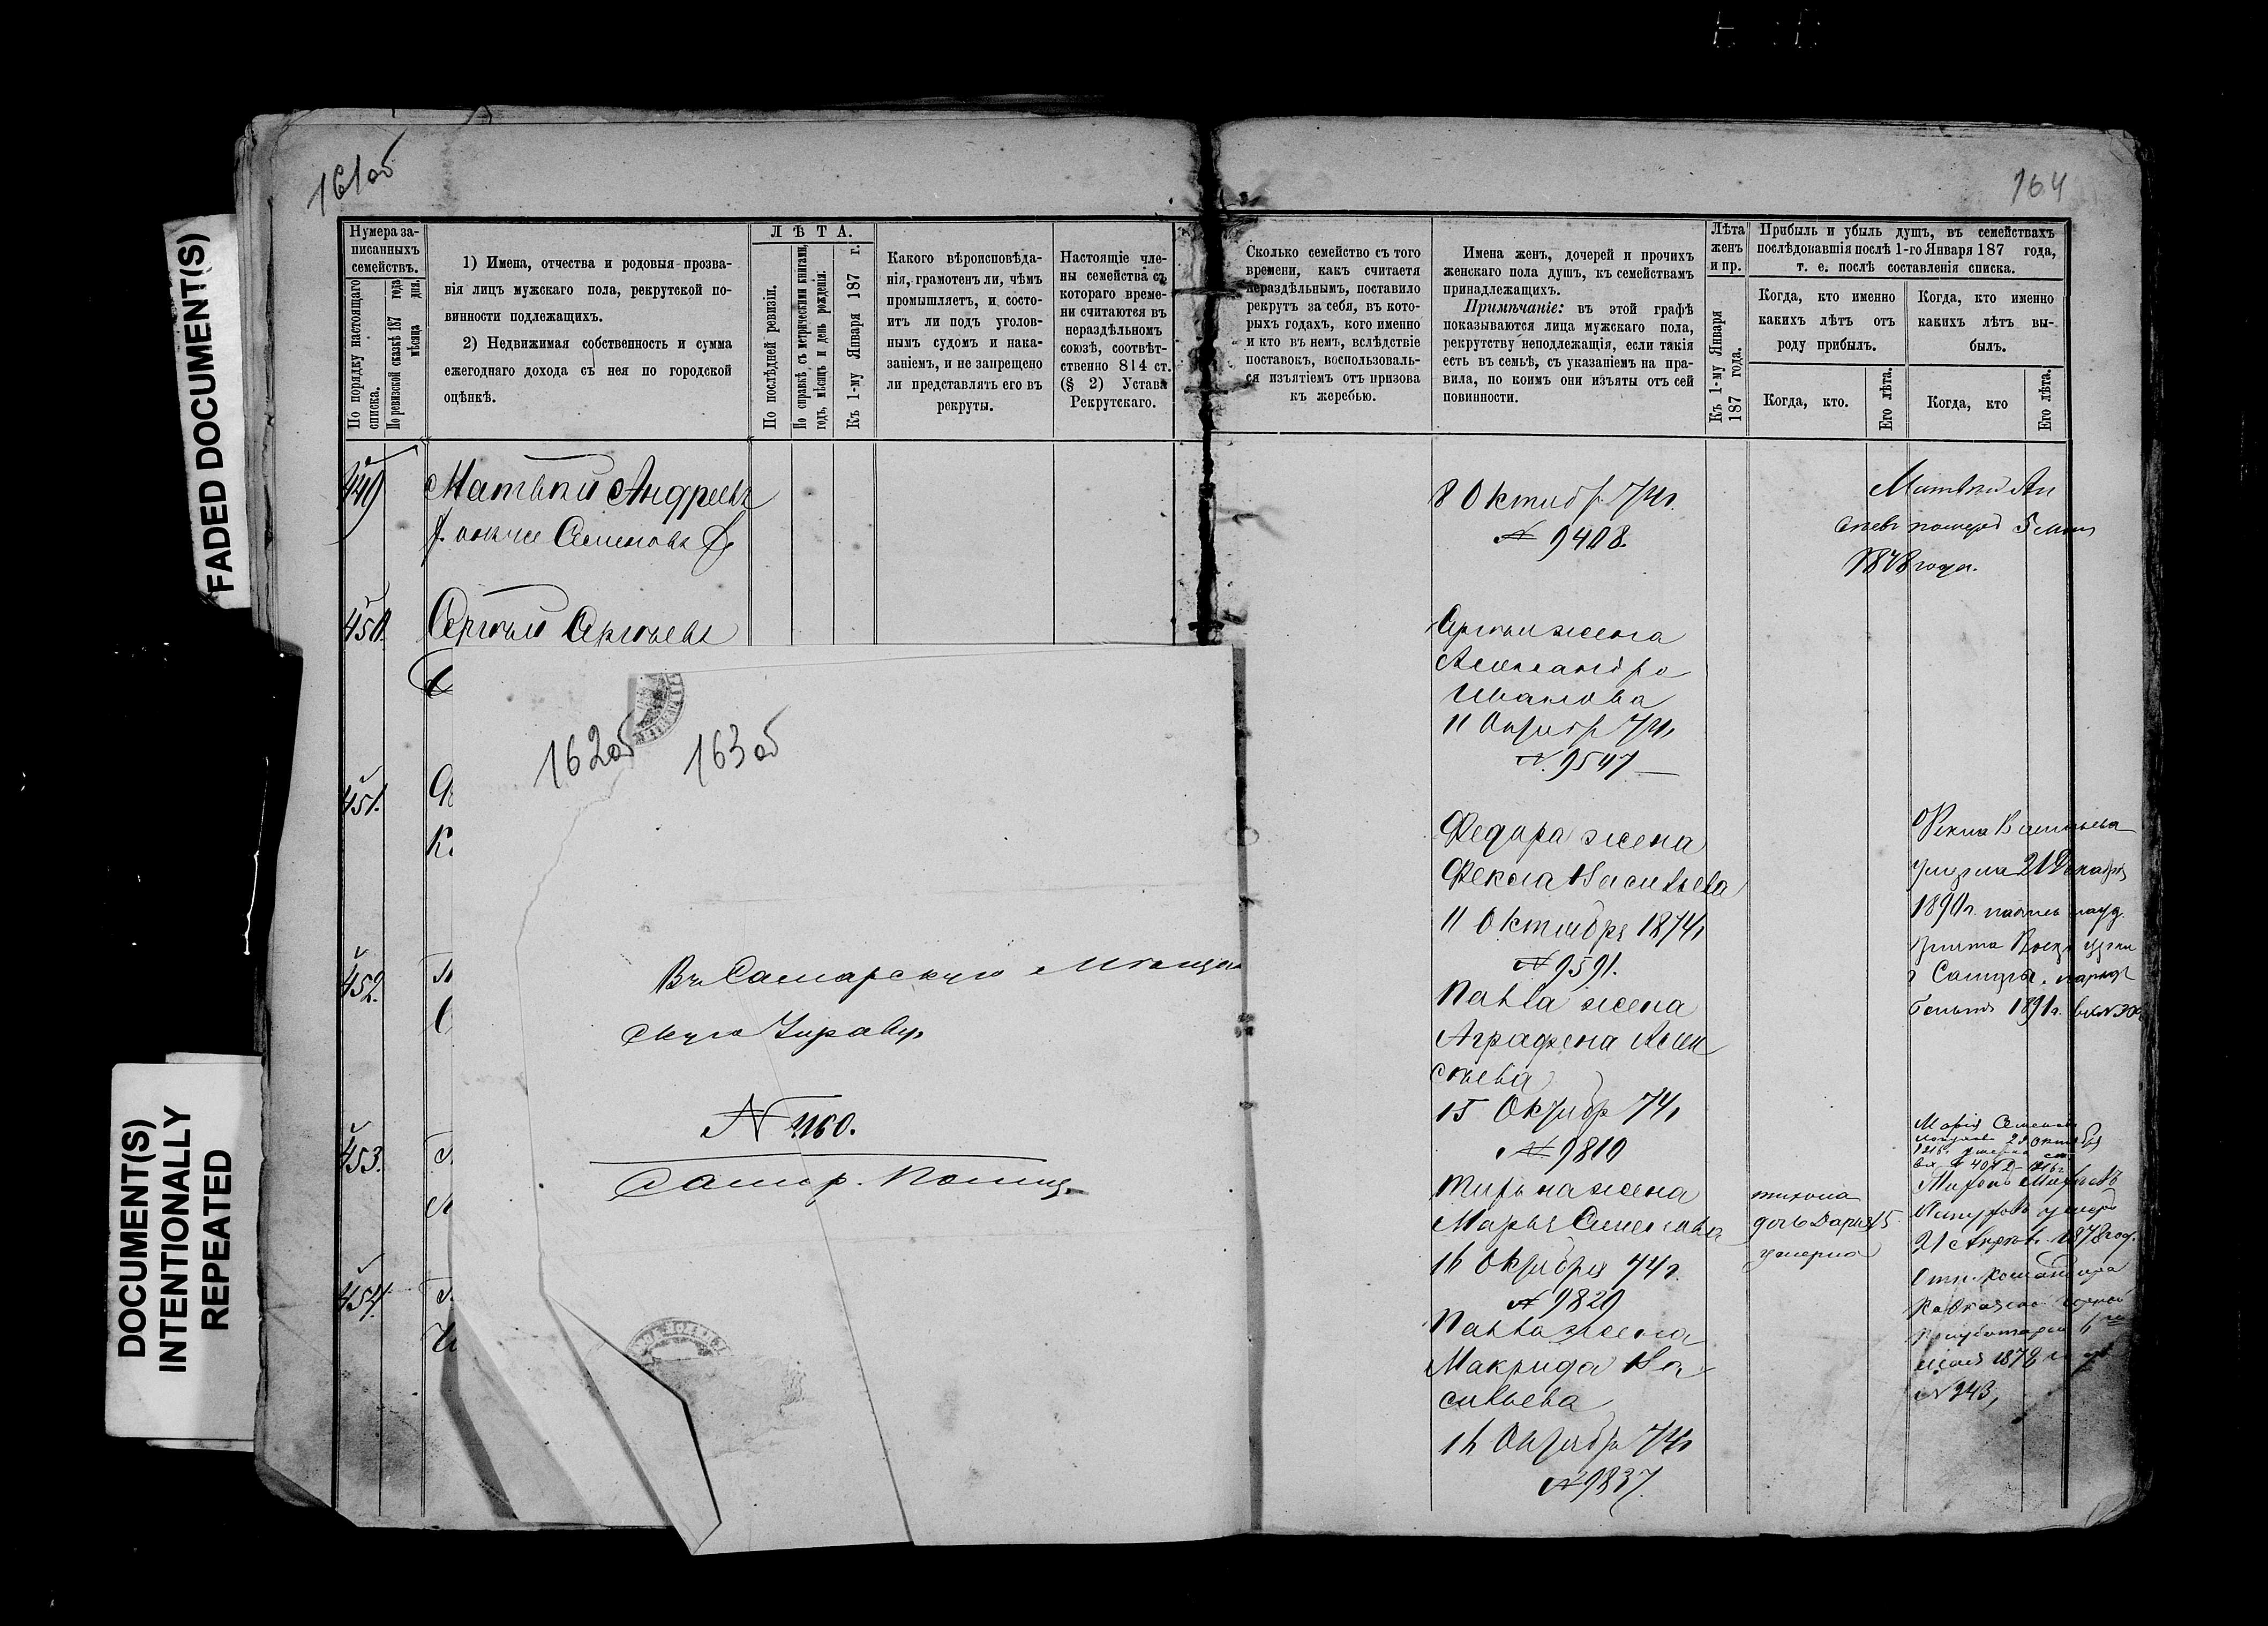 161об
164
FADED DOCUMENT(S)
DOCUMENT(S)
INTENTIONALLY
REPEATED
Нумера за-
писанныхъ
семействъ.
По порядку настоящаго
списка.
По ревизской сказкѣ 187 года
мѣсяца дня.
1) Имена, отчества и родовыя прозва-
нія лицъ мужскаго пола, рекрутской по-
винности подлежащихъ.
2) Недвижимая собственность и сумма
ежегоднаго дохода съ нея по городской
оцѣнкѣ.
ЛѢТА.
По послѣдней ревизіи.
По справкѣ съ метрическими книгами,
годъ, мѣсяцъ и день рожденія.
Къ 1-му Января 187 г.
Какого вѣроисповѣда-
нія, грамотенъ ли, чѣмъ
промышляетъ, и состо-
итъ ли подъ уголов-
нымъ судомъ и нака-
заніемъ, и не запрещено
ли представлять его въ
рекруты.
Настоящіе чле-
ны семейства съ
котораго време-
ни считаются въ
нераздѣльномъ
союзѣ, соотвѣт-
ственно 814 ст.
(§ 2) Устава
Рекрутскаго.
Сколько семейство съ того
времени, какъ считаетя
нераздѣльнымъ, поставило
рекрутъ за себя, въ кото-
рыхъ годахъ, кого именно
и кто въ немъ, вслѣдствіе
поставокъ, воспользоваль-
ся изъятіемъ отъ призова
къ жеребью.
Имена женъ, дочерей и прочихъ
женскаго пола душъ, къ семействамъ
принадлежащихъ.
Примѣчаніе: въ этой графѣ
показываются лица мужскаго пола,
рекрутству неподлежащія, если такія
есть въ семьѣ, съ указаніемъ на пра-
вила, по коимъ они изъяты отъ сей
повинности.
Лѣта
женъ
и пр.
Къ 1-му Января
187 года.
Прибыль и убыль душъ, въ семействахъ
послѣдовавшія послѣ 1-го Января 187 года,
т. е. послѣ составленія списка.
Когда, кто именно
какихъ лѣтъ отъ
роду прибылъ.
Когда, кто именно
какихъ лѣтъ вы-
былъ.
Когда, кто.
Его лѣта.
Когда, кто
Его лѣта.
449
Матвѣй Андреевъ
Семеновъ
8 Октябр 74г.
№ 9408.
Матвѣй Ан
1878 года.
450.
Сергѣй Сергѣевъ
Сергѣя жена
Александра
Иванова
11 Октябр 74г
№ 9547
162об 163об
451.
Федора жена
Фекла Васильева
11 Октября 1874г
№ 9591.
Фекла Васильева
умерла 21 Декабря
1890г.
г Самары.
1891г.
452.
Павла жена
Аграфена Алек
сѣева
15 Октябр 74г
№ 9810
Въ Самарскую Мѣщан
скую Управу
№ 1160.
Самар. Полиц.
453.
жена
Марья Семенова
16 Октября 74г.
№ 9820
дочь Дарья 15
умерла
Марія Семенова
умеръ
21 Апрѣл. 1878 год.
454.
Павла жена
Макрида Ва
сильева
16 Октябр 74г
№ 9837.
1878
№ 243,